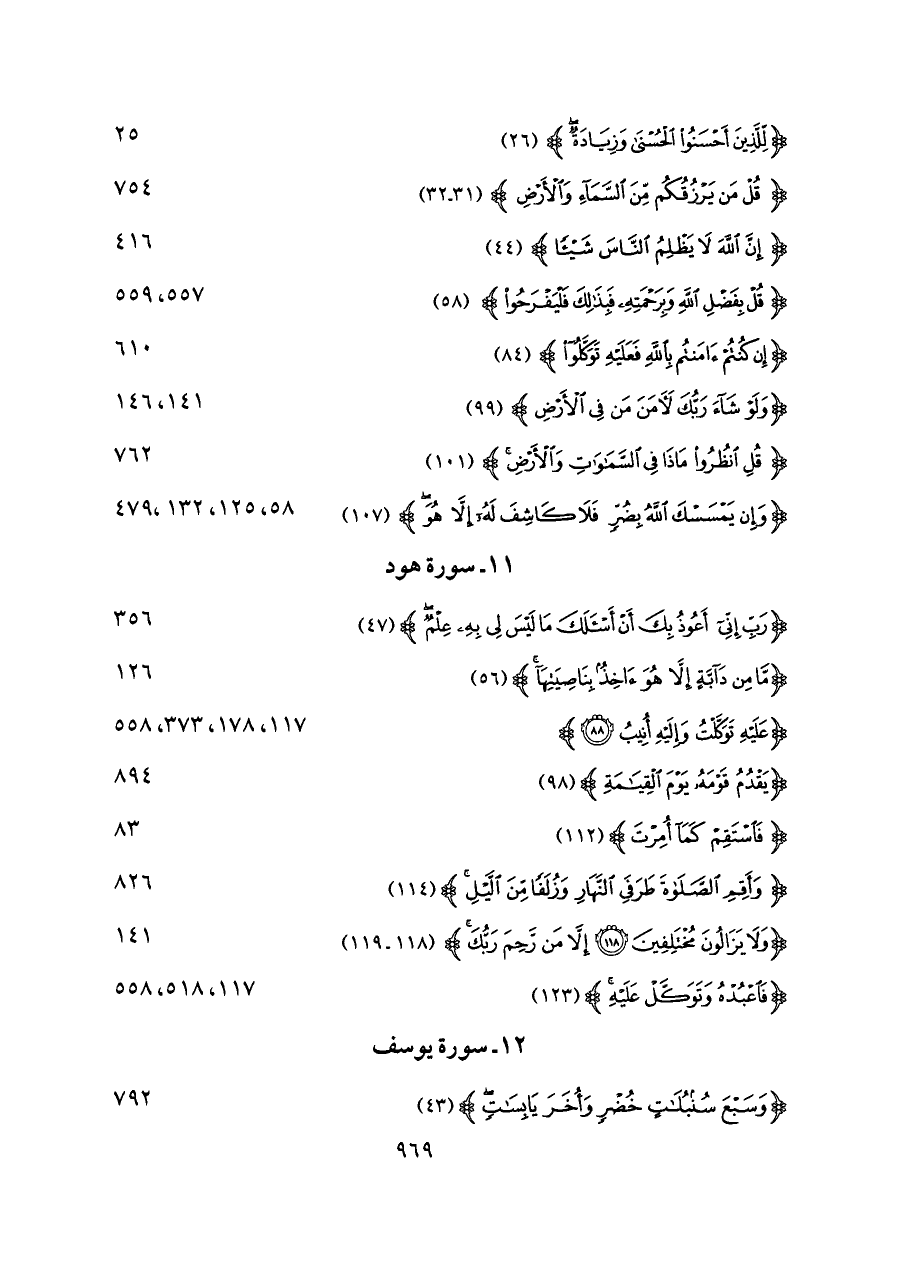 ﴿لِّلَّذِينَ أَحْسَنُوا۟ الْحُسْنَىٰ وَزِيَادَةٌ ۖ﴾ (٢٦) ٢٥
﴿ قُلْ مَن يَرْزُقُكُم مِّنَ ٱلسَّمَآءِ وَٱلْأَرْضِ ﴾ (٣١-٣٢) ٧٥٤
﴿ إِنَّ ٱللَّهَ لَا يَظْلِمُ ٱلنَّاسَ شَيْـًٔا ﴾ (٤٤) ٤١٦
﴿ قُلْ بِفَضْلِ ٱللَّهِ وَبِرَحْمَتِهِۦ فَبِذَٰلِكَ فَلْيَفْرَحُوا۟ ﴾ (٥٨) ٥٥٧، ٥٥٩
﴿إِن كُنتُمْ ءَامَنتُم بِٱللَّهِ فَعَلَيْهِ تَوَكَّلُوٓا۟ ﴾ (٨٤) ٦١٠
﴿وَلَوْ شَآءَ رَبُّكَ لَـَٔامَنَ مَن فِى ٱلْأَرْضِ ﴾ (٩٩) ١٤١، ١٤٦
﴿ قُلِ ٱنظُرُوا۟ مَاذَا فِى ٱلسَّمَٰوَٰتِ وَٱلْأَرْضِ ۚ﴾ (١٠١) ٧٦٢
﴿وَإِن يَمْسَسْكَ ٱللَّهُ بِضُرٍّ فَلَا كَاشِفَ لَهُۥٓ إِلَّا هُوَ ۖ﴾ (١٠٧) ٥٨، ١٢٥، ١٣٢، ٤٧٩
١١- سورة هود
﴿رَبِّ إِنِّىٓ أَعُوذُ بِكَ أَنْ أَسْـَٔلَكَ مَا لَيْسَ لِى بِهِۦ عِلْمٌ ۖ﴾ (٤٧) ٣٥٦
﴿مَّا مِن دَآبَّةٍ إِلَّا هُوَ ءَاخِذٌۢ بِنَاصِيَتِهَآ ۚ﴾ (٥٦) ١٢٦
﴿عَلَيْهِ تَوَكَّلْتُ وَإِلَيْهِ أُنِيبُ ٨٨ ﴾ ١١٧، ١٧٨، ٣٧٣، ٥٥٨
﴿يَقْدُمُ قَوْمَهُۥ يَوْمَ ٱلْقِيَٰمَةِ ﴾ (٩٨) ٨٩٤
﴿ فَٱسْتَقِمْ كَمَآ أُمِرْتَ ﴾ (١١٢) ٨٣
﴿ وَأَقِمِ ٱلصَّلَوٰةَ طَرَفَىِ ٱلنَّهَارِ وَزُلَفًا مِّنَ ٱلَّيْلِ ۚ﴾ (١١٤) ٨٢٦
﴿وَلَا يَزَالُونَ مُخْتَلِفِينَ ١١٨ إِلَّا مَن رَّحِمَ رَبُّكَ ۚ﴾ (١١٨ - ١١٩) ١٤١
﴿فَٱعْبُدْهُ وَتَوَكَّلْ عَلَيْهِ ۚ﴾ (١٢٣) ١١٧، ٥١٨، ٥٥٨
١٢- سورة يوسف
﴿وَسَبْعَ سُنۢبُلَٰتٍ خُضْرٍ وَأُخَرَ يَابِسَٰتٍ ۖ﴾ (٤٣) ٧٩٢
٩٦٩